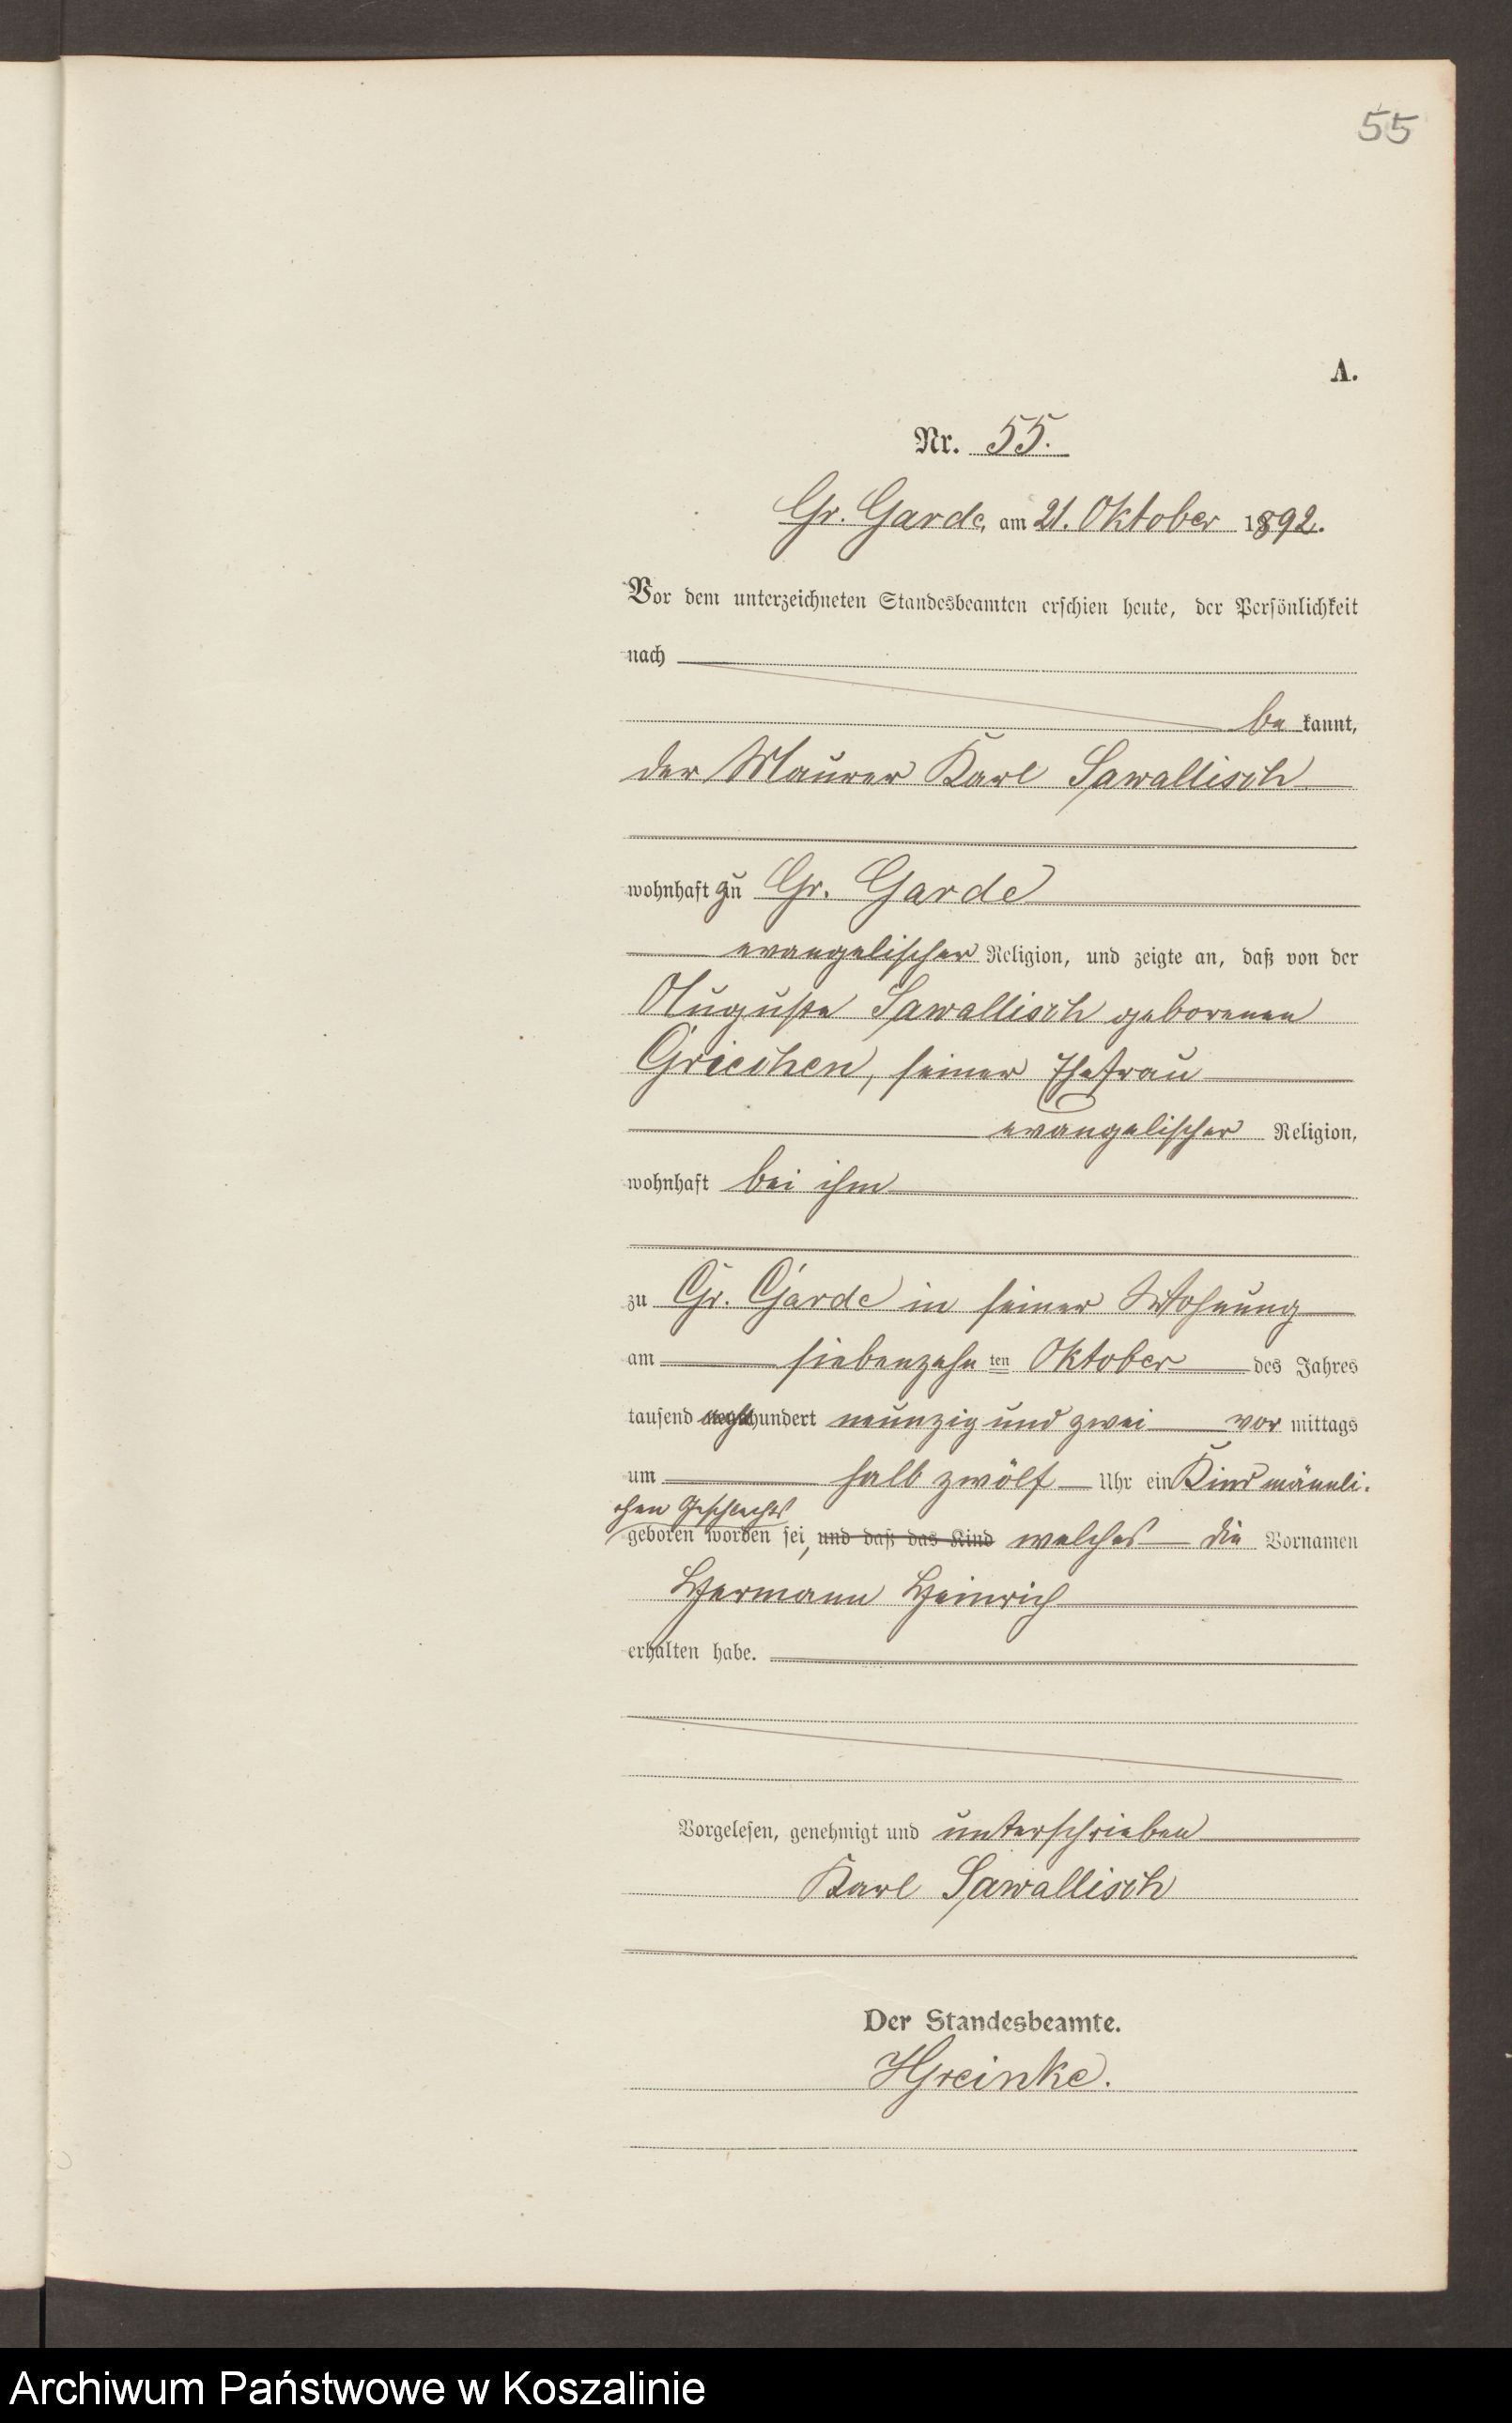 55
A.
Nr. 55.
Gr. Garde, am 21. Oktober 1892.
Vor dem unterzeichneten Standesbeamten erschien heute, der Persönlichkeit
nach
be kannt,
der Maurer Karl Sawallisch
wohnhaft zu Gr. Garde
evangelischer Religion, und zeigte an, daß von der
Auguste Sawallisch geborenen
Griechen, seiner Ehefrau
evangelischer Religion,
wohnhaft bei ihm
zu Gr. Garde in seiner Wohnung
am siebenzehn ten Oktober des Jahres
tausend acht hundert neunzig und zwei vor mittags
um halb zwölf Uhr ein Kind männli-
chen Geschlechts
geboren worden sei, und daß das Kind welches die Vornamen
Hermann Heinrich
erhalten habe.
Vorgelesen, genehmigt und unterschrieben
Karl Sawallisch
Der Standesbeamte.
HGreinke.
Archiwum Państwowe w Koszalinie